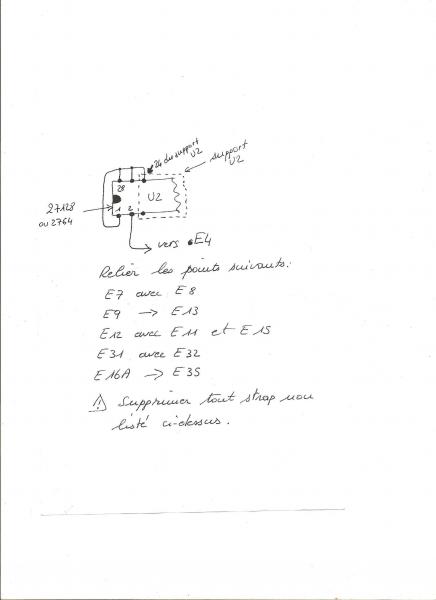 24 du support
U2
support
U2
28
U2
1 2
27128
ou 2764
vers E4
Relier les points suivants:
E7 avec E8
E9 → E13
E12 avec E11 et E15
E31 avec E32
E16A → E35
⚠ Supprimer tout strap non
listé ci-dessus.